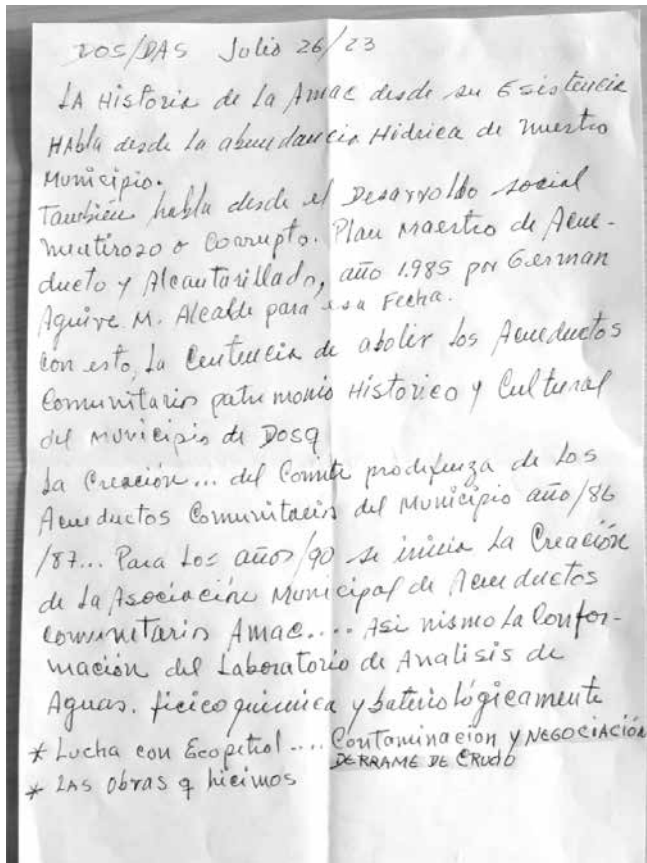 DOS/DAS Julio 26/23
LA Historia de La Amac desde su Esistencia
HAbla desde La abundancia Hidrica de nuestro
Municipio.
También habla desde el Desarrollo social
mentirozo o Corrupto. Plan Maestro de Acue-
ducto y Alcantarillado, año 1.985 por German
Aguire M. Alcalde para esa Fecha.
con esto, La Centencia de abolir Los Acueductos
Comunitarios patrimonio Historico y Cultural
del Municipio de Dosq
La Creación... del Comite prodefenza de Los
Acueductos Comunitarios del Municipio año/86
/87... Para Los años/90 se inicia La Creación
de La Asociación Municipal de Acueductos
Comunitarios Amac.... Asi nismo La Confor-
mación del Laboratorio de Analisis de
Aguas. ficico quimica y bateriológicamente
* Lucha con Ecopetrol.... Contaminacion y NEGOCIACIÓN
DERRAME DE CRUDO
* LAS Obras q hicimos